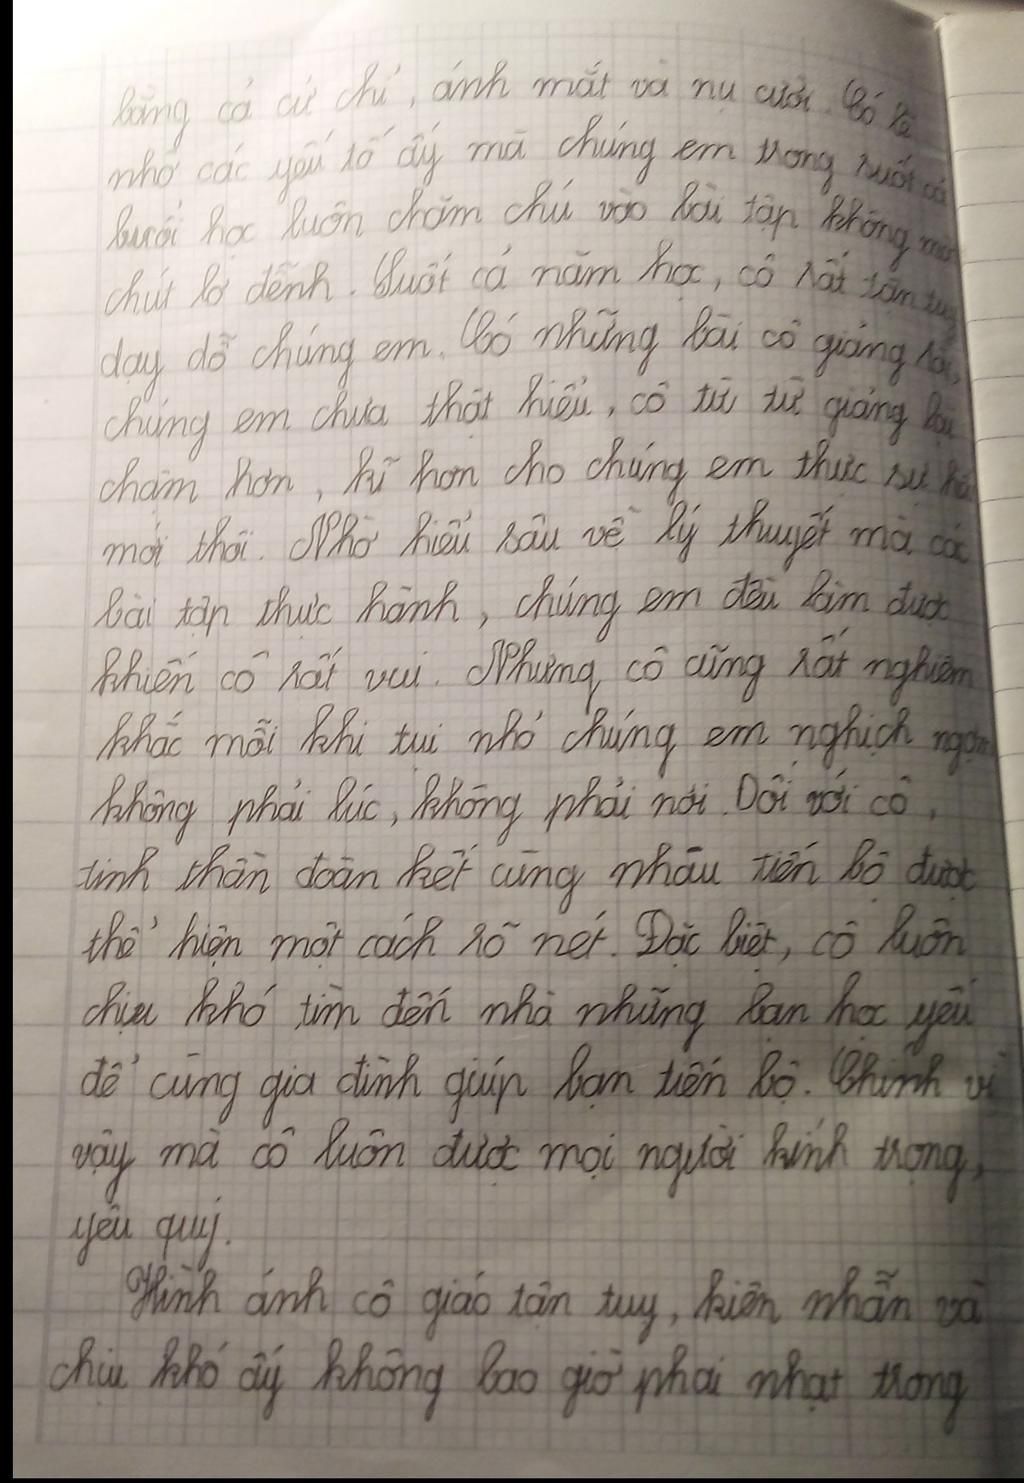 bằng cả cử chỉ, ánh mắt và nụ cười. Có lẽ
nhờ các yếu tố ấy mà chúng em trong suốt cả
buổi học luôn chăm chú vào bài tập không một
chút lơ đễnh. Suốt cả năm học, cô rất tận tuỵ
dạy dỗ chúng em. Có những bài cô giảng rồi,
chúng em chưa thật hiểu, cô từ từ giảng lại
chậm hơn, kĩ hơn cho chúng em thực sự
mới thôi. Nhờ hiểu sâu về lý thuyết mà các
bài tập thực hành, chúng em đều làm được
khiến cô rất vui. Nhưng cô cũng rất nghiêm
khắc mỗi khi tụi nhỏ chúng em nghịch ngợm
không phải lúc, không phải nơi. Đối với cô,
tinh thần đoàn kết cùng nhau tiến bộ được
thể hiện một cách rõ nét. Đặc biệt, cô luôn
chịu khó tìm đến nhà những bạn học yếu
để cùng gia đình giúp bạn tiến bộ. Chính vì
vậy mà cô luôn được mọi người kính trọng,
yêu quý.
Hình ảnh cô giáo tận tuỵ, kiên nhẫn và
chịu khó ấy không bao giờ phai nhạt trong